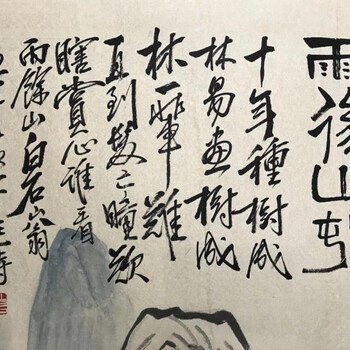 雨後山村
十年種樹成
林易畫樹成
林一輩難
直到髮亡瞳欲
瞎賞心誰看
雨餘山白石山翁